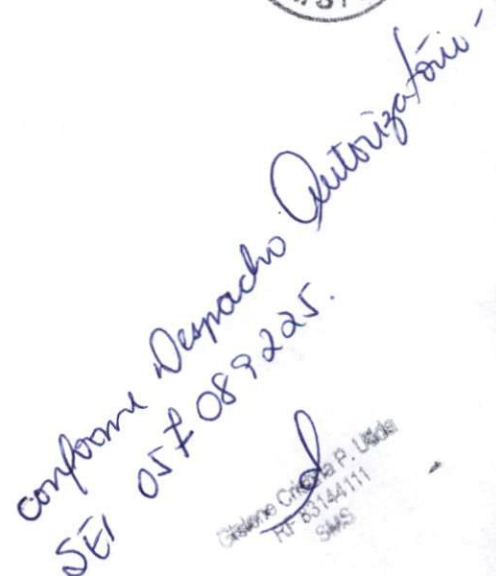 conforme Despacho Autorizatório -
SEI 057089225.
Cristina P.
RF 83144111
SMS